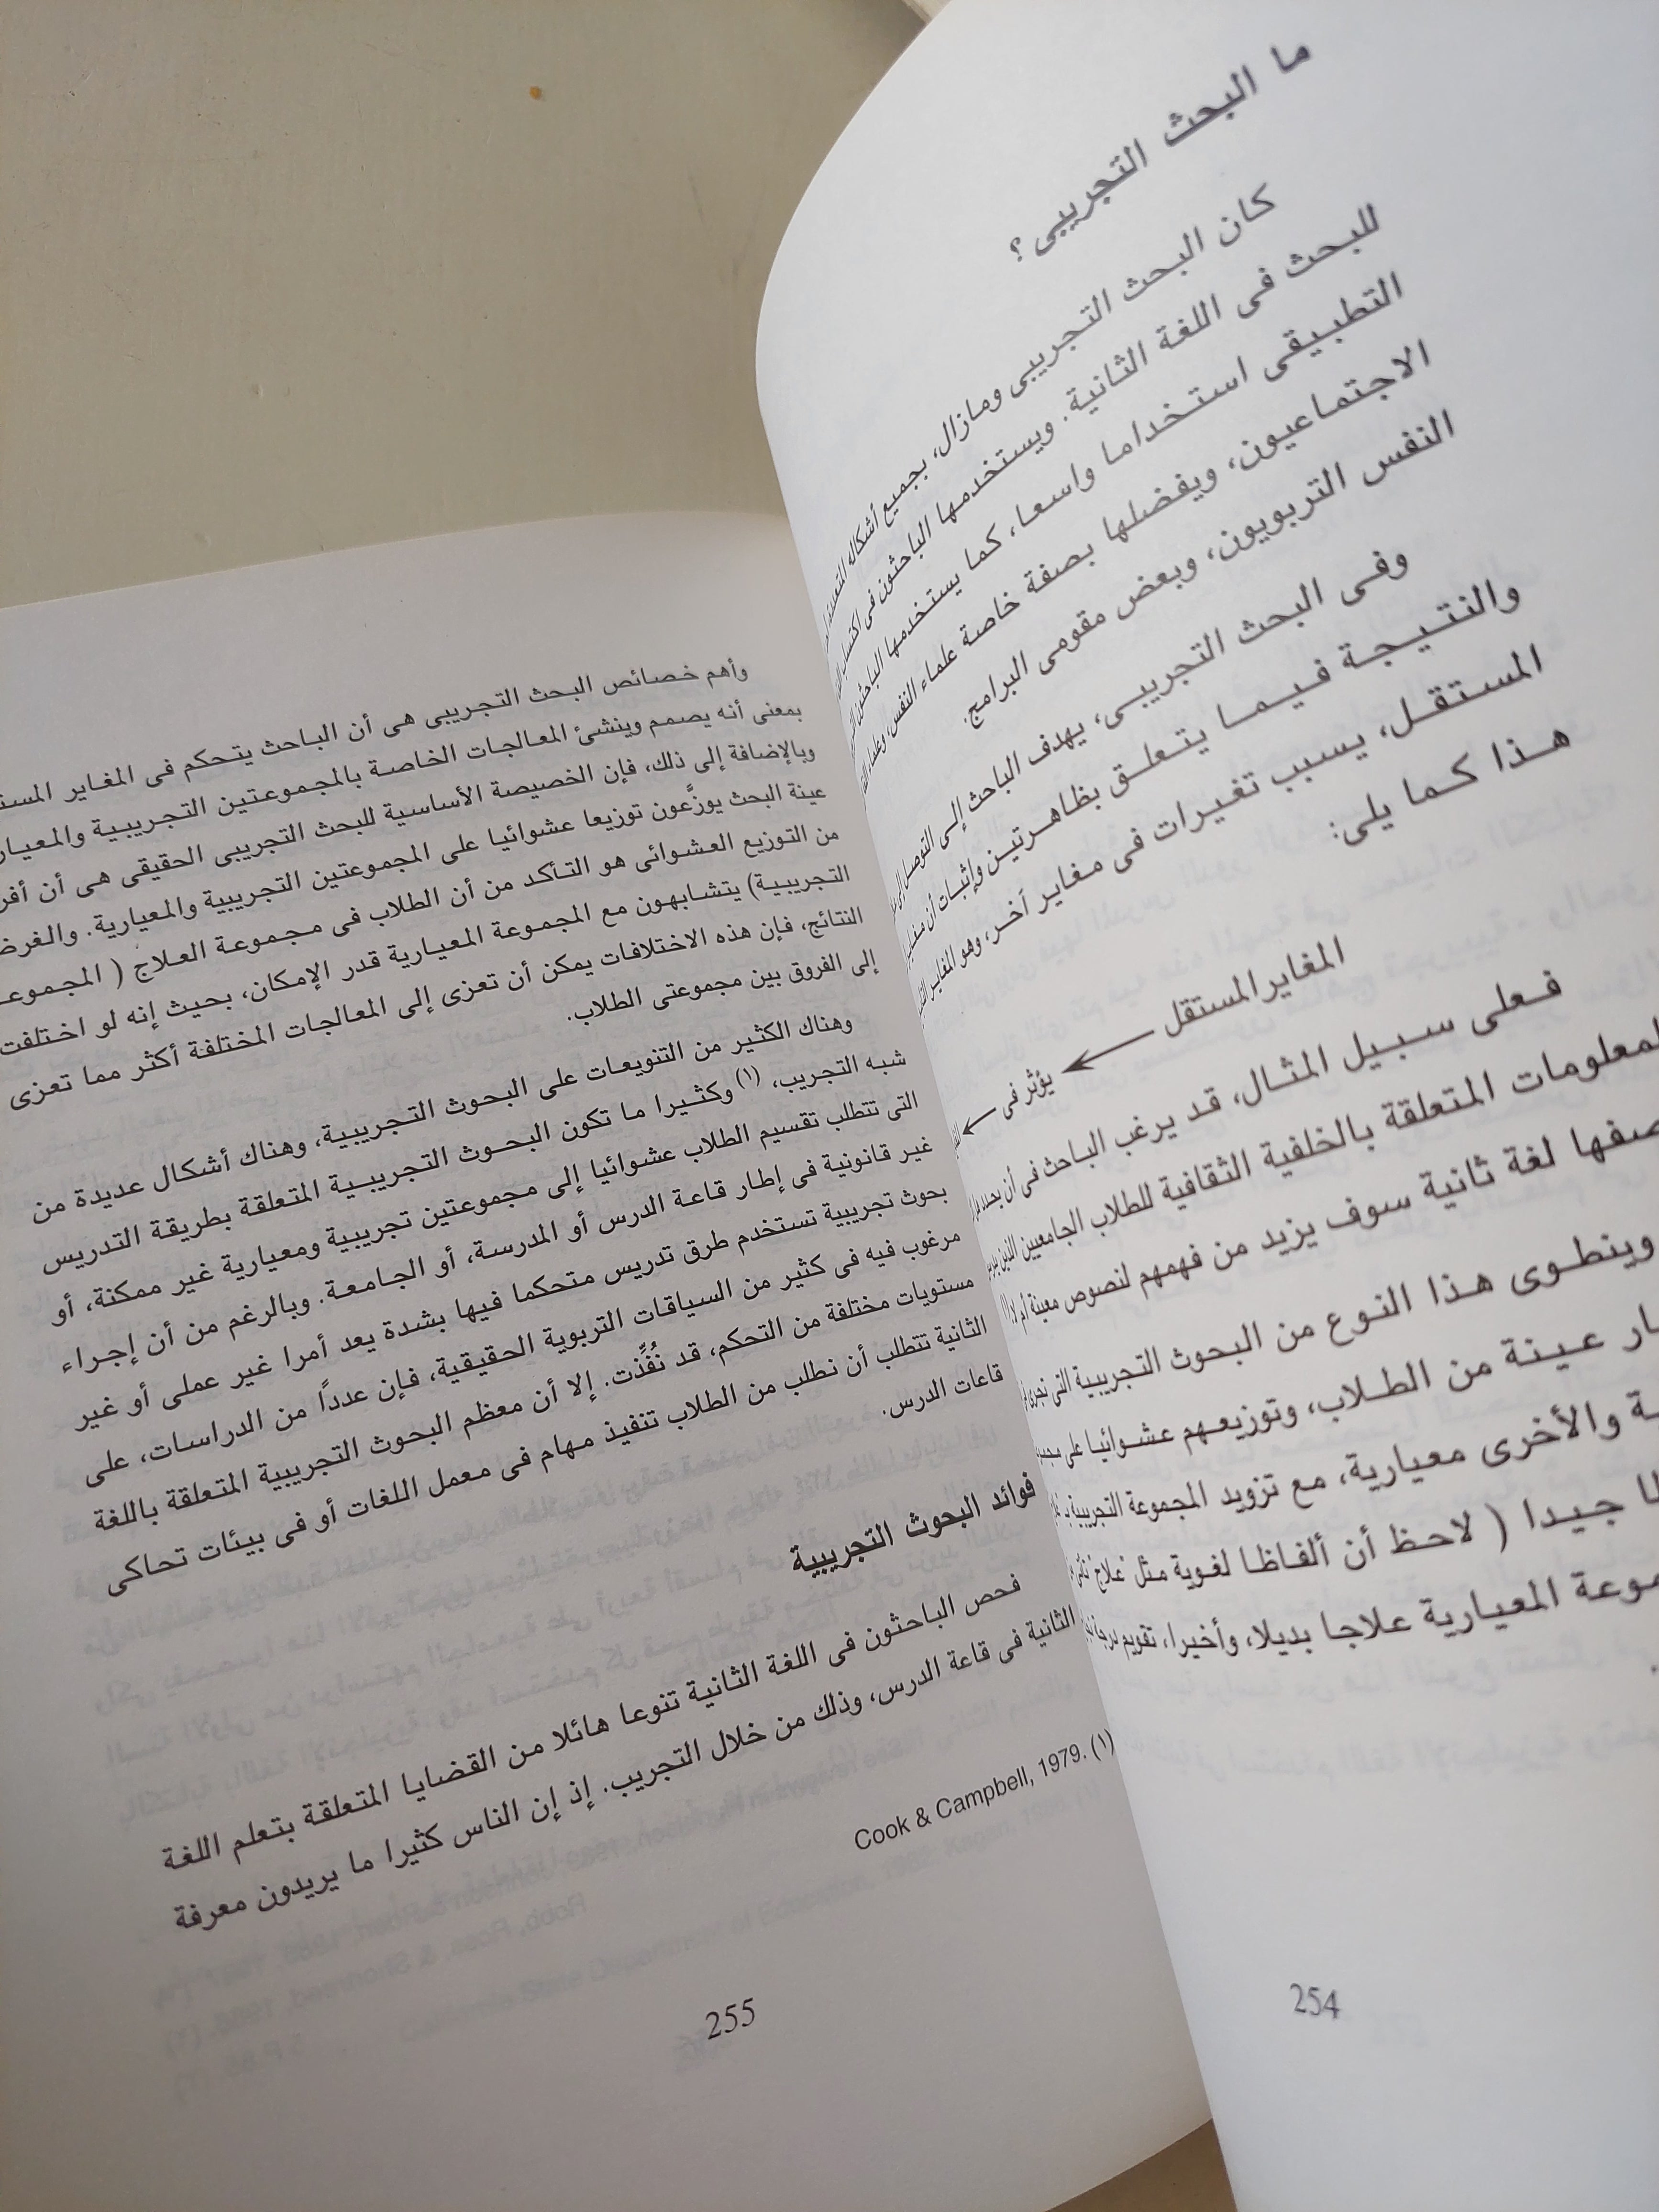 ما البحث التجريبى ؟
كان البحث التجريبى ومازال، بجميع أشكاله المتعددة
للبحث فى اللغة الثانية. ويستخدمها الباحثون فى اكتساب
التطبيقى استخداما واسعا، كما يستخدمها الباحثون
الاجتماعيون، ويفضلها بصفة خاصة علماء النفس، وعلماء
النفس التربويون، وبعض مقومى البرامج.
وفى البحث التجريبى، يهدف الباحث إلى التوصل إلى
والنتيجة فيما يتعلق بظاهرتين وإثبات أن
المستقل، يسبب تغيرات فى مغاير آخر، وهو المغاير
هذا كما يلى:
المغاير المستقل يؤثر فى
فعلى سبيل المثال، قد يرغب الباحث فى أن يحدد
المعلومات المتعلقة بالخلفية الثقافية للطلاب الجامعيين الذين
لغة ثانية سوف يزيد من فهمهم لنصوص معينة أم لا
وينطوى هذا النوع من البحوث التجريبية التى تجرى
عينة من الطلاب، وتوزيعهم عشوائيا على
والأخرى معيارية، مع تزويد المجموعة التجريبية
جيدا ( لاحظ أن ألفاظا لغوية مثل علاج
المعيارية علاجا بديلا، وأخيرا، تقويم
254
وأهم خصائص البحث التجريبى هى أن الباحث يتحكم فى المغاير
بمعنى أنه يصمم وينشئ المعالجات الخاصة بالمجموعتين التجريبية
وبالإضافة إلى ذلك، فإن الخصيصة الأساسية للبحث التجريبى الحقيقى هى أن
عينة البحث يوزَّعون توزيعا عشوائيا على المجموعتين التجريبية والمعيارية. والغرض
من التوزيع العشوائى هو التأكد من أن الطلاب فى مجموعة العلاج ( المجموعة
التجريبية) يتشابهون مع المجموعة المعيارية قدر الإمكان، بحيث إنه لو اختلفت
النتائج، فإن هذه الاختلافات يمكن أن تعزى إلى المعالجات المختلفة أكثر مما تعزى
إلى الفروق بين مجموعتى الطلاب.
وهناك الكثير من التنويعات على البحوث التجريبية، وهناك أشكال عديدة من
شبه التجريب، (١) وكثيرا ما تكون البحوث التجريبية المتعلقة بطريقة التدريس
التى تتطلب تقسيم الطلاب عشوائيا إلى مجموعتين تجريبية ومعيارية غير ممكنة، أو
غير قانونية فى إطار قاعة الدرس أو المدرسة، أو الجامعة. وبالرغم من أن إجراء
بحوث تجريبية تستخدم طرق تدريس متحكما فيها بشدة يعد أمرا غير عملى أو غير
مرغوب فيه فى كثير من السياقات التربوية الحقيقية، فإن عدداً من الدراسات، على
مستويات مختلفة من التحكم، قد نُفِّذت. إلا أن معظم البحوث التجريبية المتعلقة باللغة
الثانية تتطلب أن نطلب من الطلاب تنفيذ مهام فى معمل اللغات أو فى بيئات تحاكى
قاعات الدرس.
فوائد البحوث التجريبية
فحص الباحثون فى اللغة الثانية تنوعا هائلا من القضايا المتعلقة بتعلم اللغة
الثانية فى قاعة الدرس، وذلك من خلال التجريب. إذ إن الناس كثيرا ما يريدون معرفة
Cook & Campbell, 1979. (١)
255